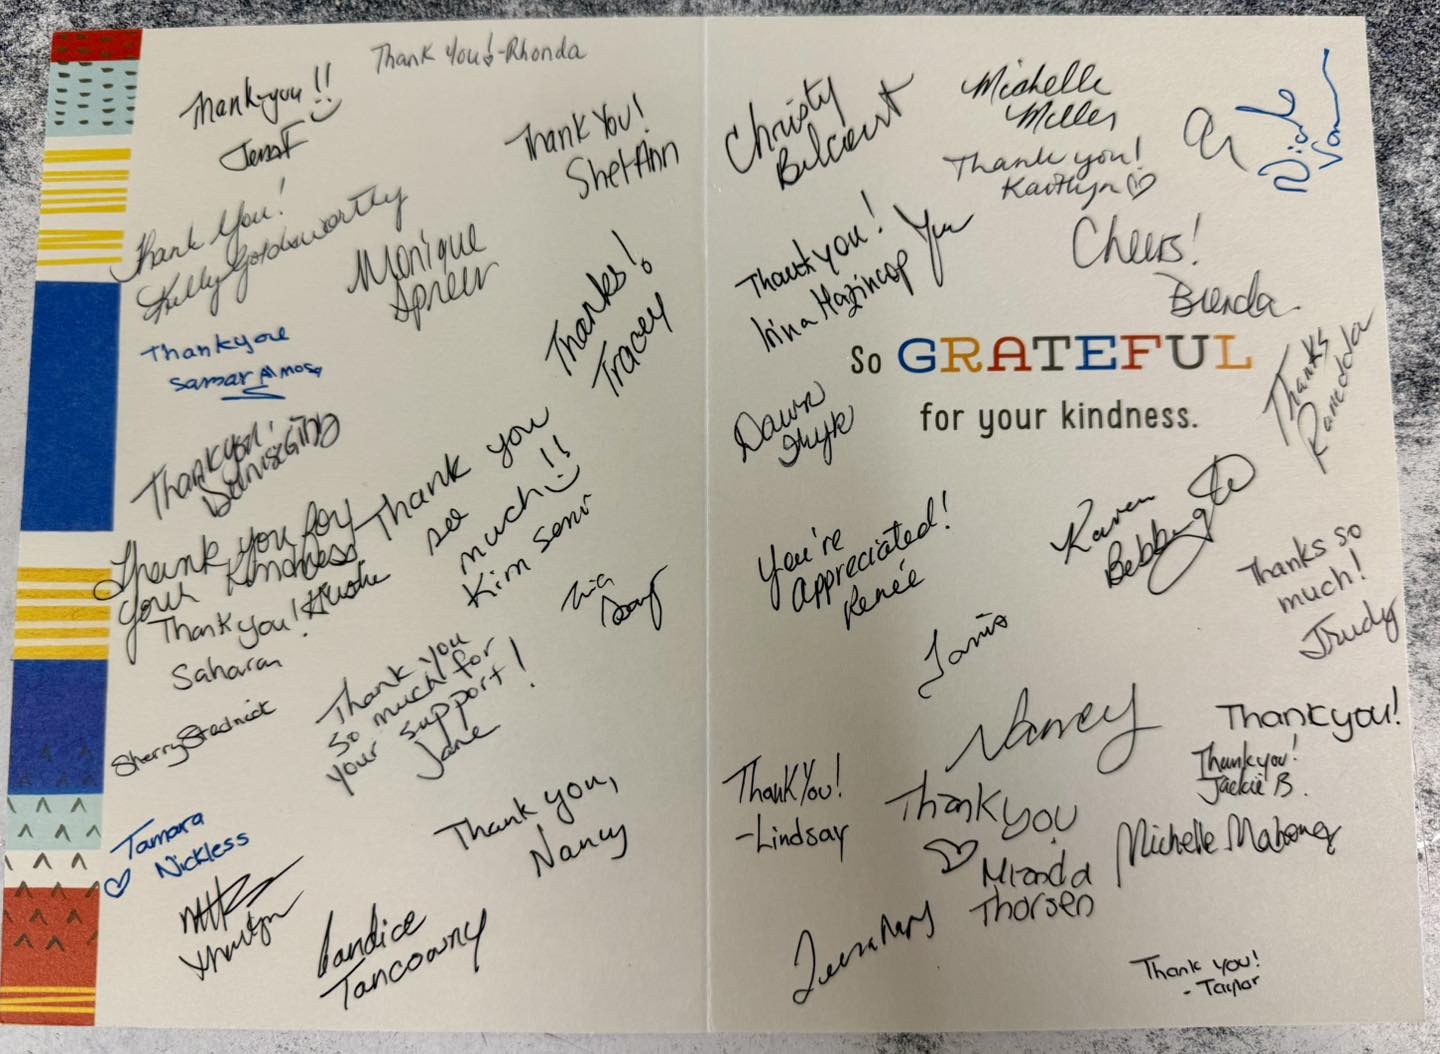 Thank You!-Rhonda
Thank-you!!
Jenn F
Thank You!
ShelAnn
Thank You!
Kelly Goldsworthy
Monique
Spreer
Thanks!
Tracey
Thankyou
Samar Almosa
Thank you!
Thank you
so
much!!
Kim
Thank you for
your kindness
Thank you!
Saharan
Sherry Stadnick
Thank you
so much for
your support!
Jane
Thank you,
Nancy
Tamara
Nickless
Candice
Tancowny
Christy
Belcourt
Michelle
Miller
Thank you!
Kaitlyn
Nicole
Thank you!
Irina Mazincop
Cheers!
Brenda
So GRATEFUL
for your kindness.
Thanks
Dawn
You're
Appreciated!
Renée
Karen
Thanks so
much!
Trudy
Janis
Nancy
Thank you!
Thank you!
Jackie B.
Thank You!
-Lindsay
Thank you
Miranda
Thorsen
Michelle Mahoney
Thank you!
- Taylor